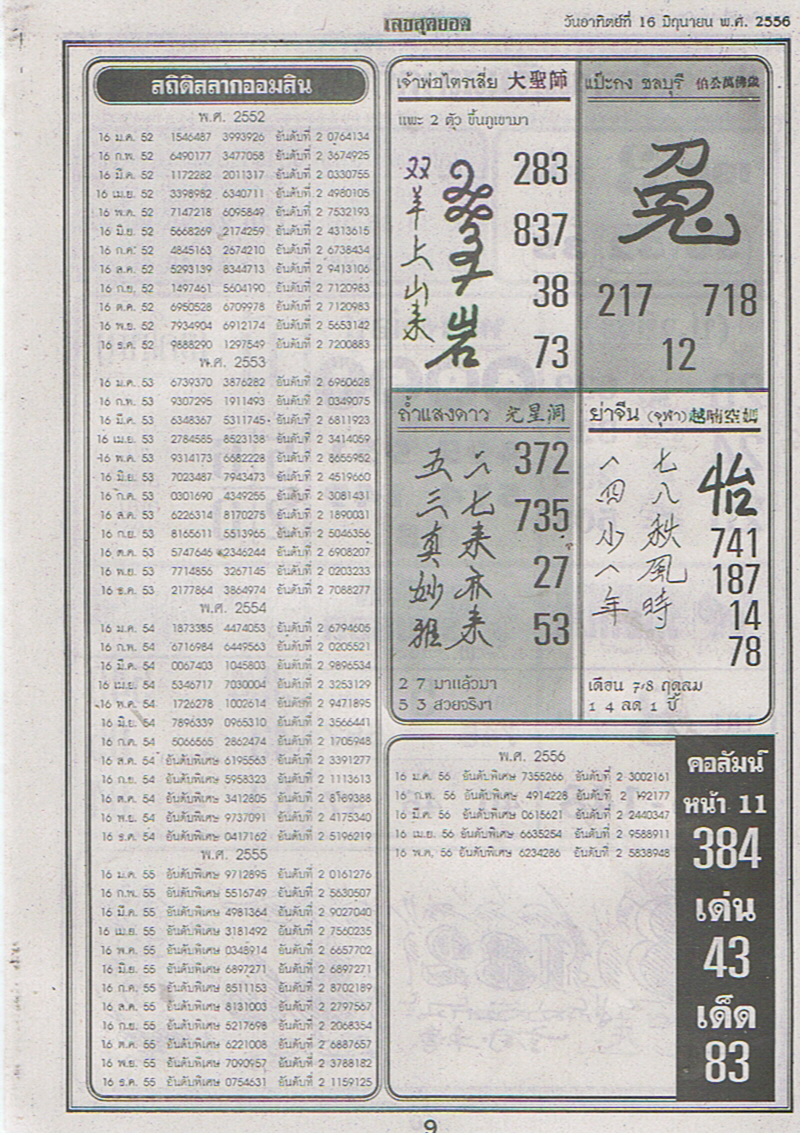 เลขสุดยอด
วันอาทิตย์ที่ 16 มิถุนายน พ.ศ. 2556
สถิติสลากออมสิน
พ.ศ. 2552
16 ม.ค. 52 1546487 3993926 อันดับที่ 2 0764134
16 ก.พ. 52 6490177 3477058 อันดับที่ 2 3674925
16 มี.ค. 52 1172282 2011317 อันดับที่ 2 0330755
16 เม.ย. 52 3398982 6340711 อันดับที่ 2 4980105
16 พ.ค. 52 7147218 6095849 อันดับที่ 2 7532193
16 มิ.ย. 52 5668269 2174259 อันดับที่ 2 4313615
16 ก.ค. 52 4845163 2674210 อันดับที่ 2 6738434
16 ส.ค. 52 5293139 8344713 อันดับที่ 2 9413106
16 ก.ย. 52 1497461 5604190 อันดับที่ 2 7120983
16 ต.ค. 52 6950528 6709978 อันดับที่ 2 7120983
16 พ.ย. 52 7934904 6912174 อันดับที่ 2 5653142
16 ธ.ค. 52 9888290 1297549 อันดับที่ 2 7200883
พ.ศ. 2553
16 ม.ค. 53 6739370 3876282 อันดับที่ 2 6960628
16 ก.พ. 53 9307295 1911493 อันดับที่ 2 0349075
16 มี.ค. 53 6348367 5311745 อันดับที่ 2 6811923
16 เม.ย. 53 2784585 8523138 อันดับที่ 2 3414059
16 พ.ค. 53 9314173 6682228 อันดับที่ 2 8655952
16 มิ.ย. 53 7023487 7943473 อันดับที่ 2 4519660
16 ก.ค. 53 0301690 4349255 อันดับที่ 2 3081431
16 ส.ค. 53 6226314 8170275 อันดับที่ 2 1890031
16 ก.ย. 53 8165611 5513965 อันดับที่ 2 5046356
16 ต.ค. 53 5747646 2346244 อันดับที่ 2 6908207
16 พ.ย. 53 7714856 3267145 อันดับที่ 2 0203233
16 ธ.ค. 53 2177864 3864974 อันดับที่ 2 7088277
พ.ศ. 2554
16 ม.ค. 54 1873385 4474053 อันดับที่ 2 6794605
16 ก.พ. 54 6716984 6449563 อันดับที่ 2 0205521
16 มี.ค. 54 0067403 1045803 อันดับที่ 2 9896534
16 เม.ย. 54 5346717 7030004 อันดับที่ 2 3253129
16 พ.ค. 54 1726278 1002614 อันดับที่ 2 9471895
16 มิ.ย. 54 7896339 0965310 อันดับที่ 2 3566441
16 ก.ค. 54 5066565 2862474 อันดับที่ 2 1705948
16 ส.ค. 54 อันดับพิเศษ 6195563 อันดับที่ 2 3391277
16 ก.ย. 54 อันดับพิเศษ 5958323 อันดับที่ 2 1113613
16 ต.ค. 54 อันดับพิเศษ 3412805 อันดับที่ 2 8189388
16 พ.ย. 54 อันดับพิเศษ 9737091 อันดับที่ 2 4175340
16 ธ.ค. 54 อันดับพิเศษ 0417162 อันดับที่ 2 5196219
พ.ศ. 2555
16 ม.ค. 55 อันดับพิเศษ 9712895 อันดับที่ 2 0161276
16 ก.พ. 55 อันดับพิเศษ 5516749 อันดับที่ 2 5630507
16 มี.ค. 55 อันดับพิเศษ 4981364 อันดับที่ 2 9027040
16 เม.ย. 55 อันดับพิเศษ 3181492 อันดับที่ 2 7560235
16 พ.ค. 55 อันดับพิเศษ 0348914 อันดับที่ 2 6657702
16 มิ.ย. 55 อันดับพิเศษ 6897271 อันดับที่ 2 6897271
16 ก.ค. 55 อันดับพิเศษ 8511153 อันดับที่ 2 8702189
16 ส.ค. 55 อันดับพิเศษ 8131003 อันดับที่ 2 2797567
16 ก.ย. 55 อันดับพิเศษ 5217698 อันดับที่ 2 2068354
16 ต.ค. 55 อันดับพิเศษ 6221008 อันดับที่ 2 6887657
16 พ.ย. 55 อันดับพิเศษ 7090957 อันดับที่ 2 3788182
16 ธ.ค. 55 อันดับพิเศษ 0754631 อันดับที่ 2 1159125
เจ้าพ่อไตรเสี่ย 大聖師
แพะ 2 ตัว ขึ้นภูเขามา
双羊上山来
岩
283
837
38
73
แป๊ะกง ชลบุรี
217 718
12
ถ้ำแสงดาว 光星洞
五三真妙
六七来亦来
372
735
27
53
2 7 มาแล้วมา
5 3 สวยจริงๆ
ย่าจีน (จุฬา)
八四少八年
七八秋風時
怡
741
187
14
78
เดือน 7-8 ฤดูลม
1 4 ลด 1 ปี
พ.ศ. 2556
16 ม.ค. 56 อันดับพิเศษ 7355266 อันดับที่ 2 3002161
16 ก.พ. 56 อันดับพิเศษ 4914228 อันดับที่ 2 192177
16 มี.ค. 56 อันดับพิเศษ 0615621 อันดับที่ 2 2440347
16 เม.ย. 56 อันดับพิเศษ 6635254 อันดับที่ 2 9588911
16 พ.ค. 56 อันดับพิเศษ 6234286 อันดับที่ 2 5838948
คอลัมน์
หน้า 11
384
เด่น
43
เด็ด
83
9